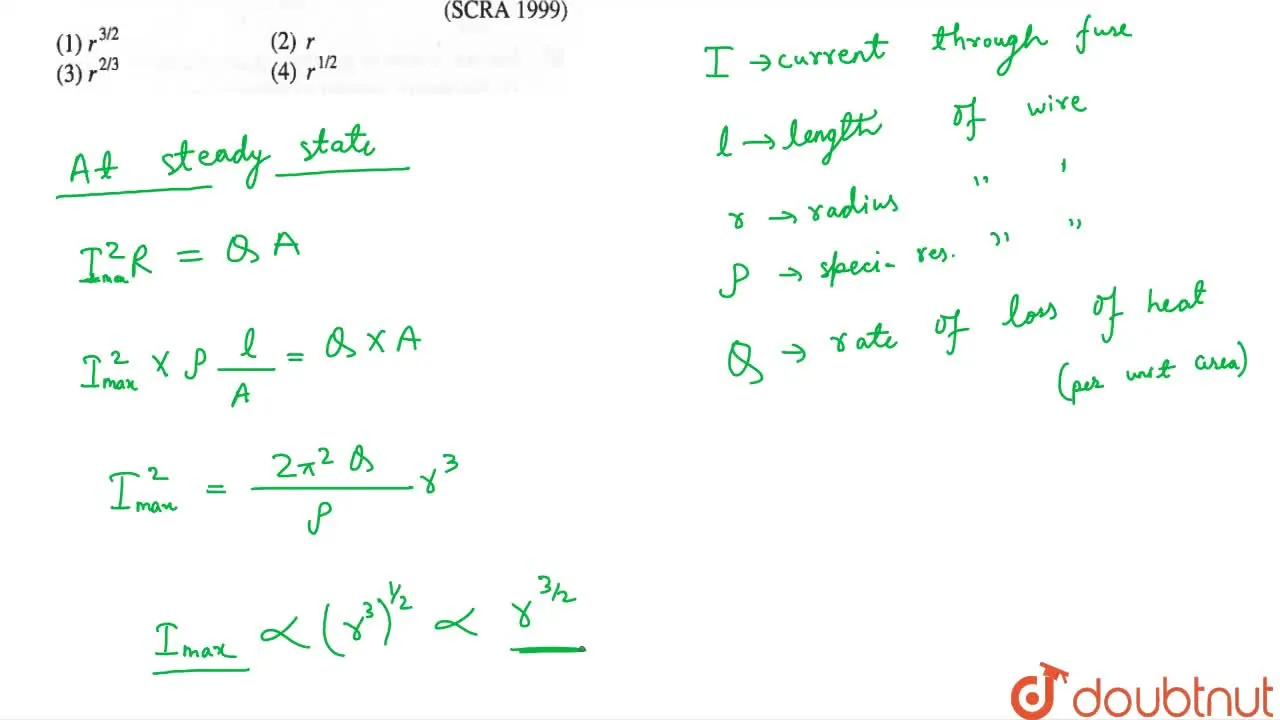 (SCRA 1999)
(1) r^{3/2} (2) r
(3) r^{2/3} (4) r^{1/2}
At steady state
I_{max}^2 R = Q A
I_{max}^2 × ρ l/A = Q × A
I_{max}^2 = 2π^2 Q/ρ r^3
I_{max} ∝ (r^3)^{1/2} ∝ r^{3/2}
I → current through fuse
l → length of wire
r → radius " "
ρ → speci- res. " "
Q → rate of loss of heat
(per unit area)
doubtnut